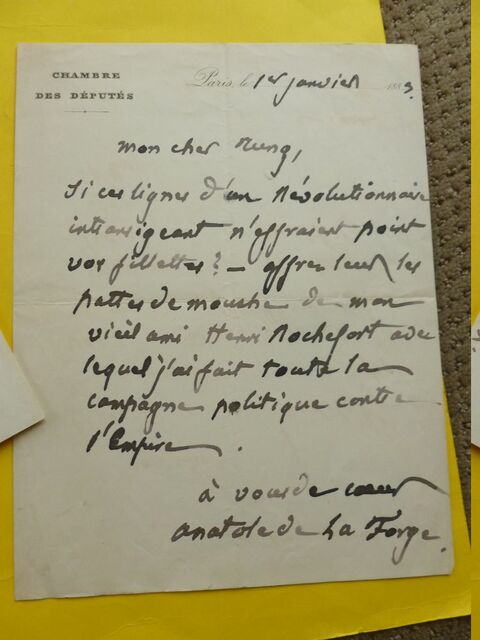 CHAMBRE
DES DÉPUTÉS
Paris, le 1er janvier 1883.
mon cher Mung,
Si ces lignes d'un Révolutionnaire
intransigeant n'effraient point
vos fillettes? - offrez leur les
pattes de mouche de mon
vieil ami Henri Rochefort avec
lequel j'ai fait toute la
campagne politique contre
l'Empire.
à vous de cœur
anatole de La Forge.